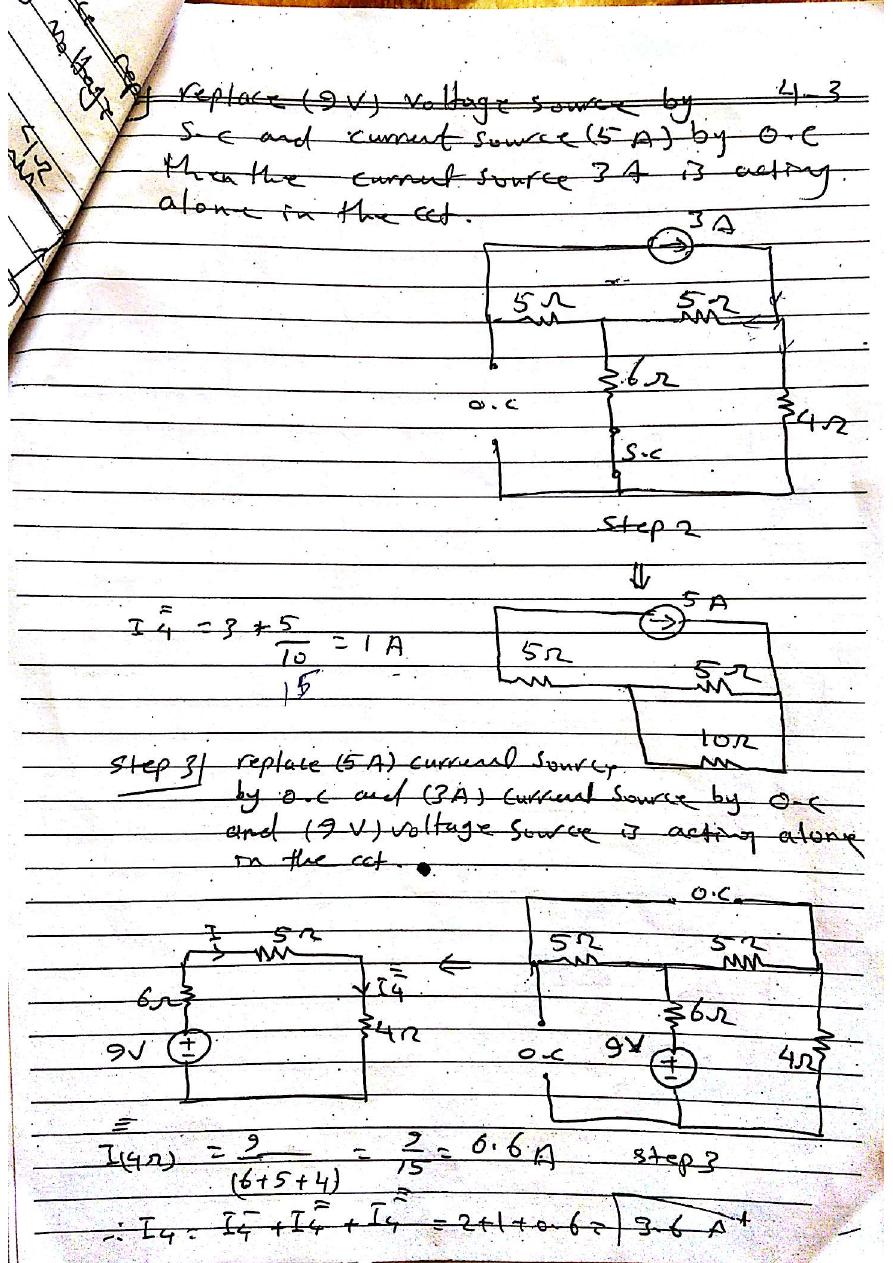 4-3
replace (9V) voltage source by
s-c and current source (5 A) by o.c
then the current source 3 A is acting
alone in the cct.
voltage
3 A
5Ω 5Ω
6Ω
o.c
4Ω
s.c
step 2
⇓
5 A
I4̿ = 3 * 5/10 = 1 A
15
5Ω
5Ω
10Ω
step 3/ replace (5 A) current source
by o.c and (3A) current source by o-c
and (9 V) voltage source is acting alone
in the cct.
o.c.
I 5Ω
5Ω 5Ω
⇐
6Ω
I4
6Ω
4Ω
9V
o.c 9V
4Ω
I(4Ω) = 9/(6+5+4) = 9/15 = 0.6 A step 3
∴ I4 = I4 + I4 + I4 = 2+1+0.6 = 3.6 A